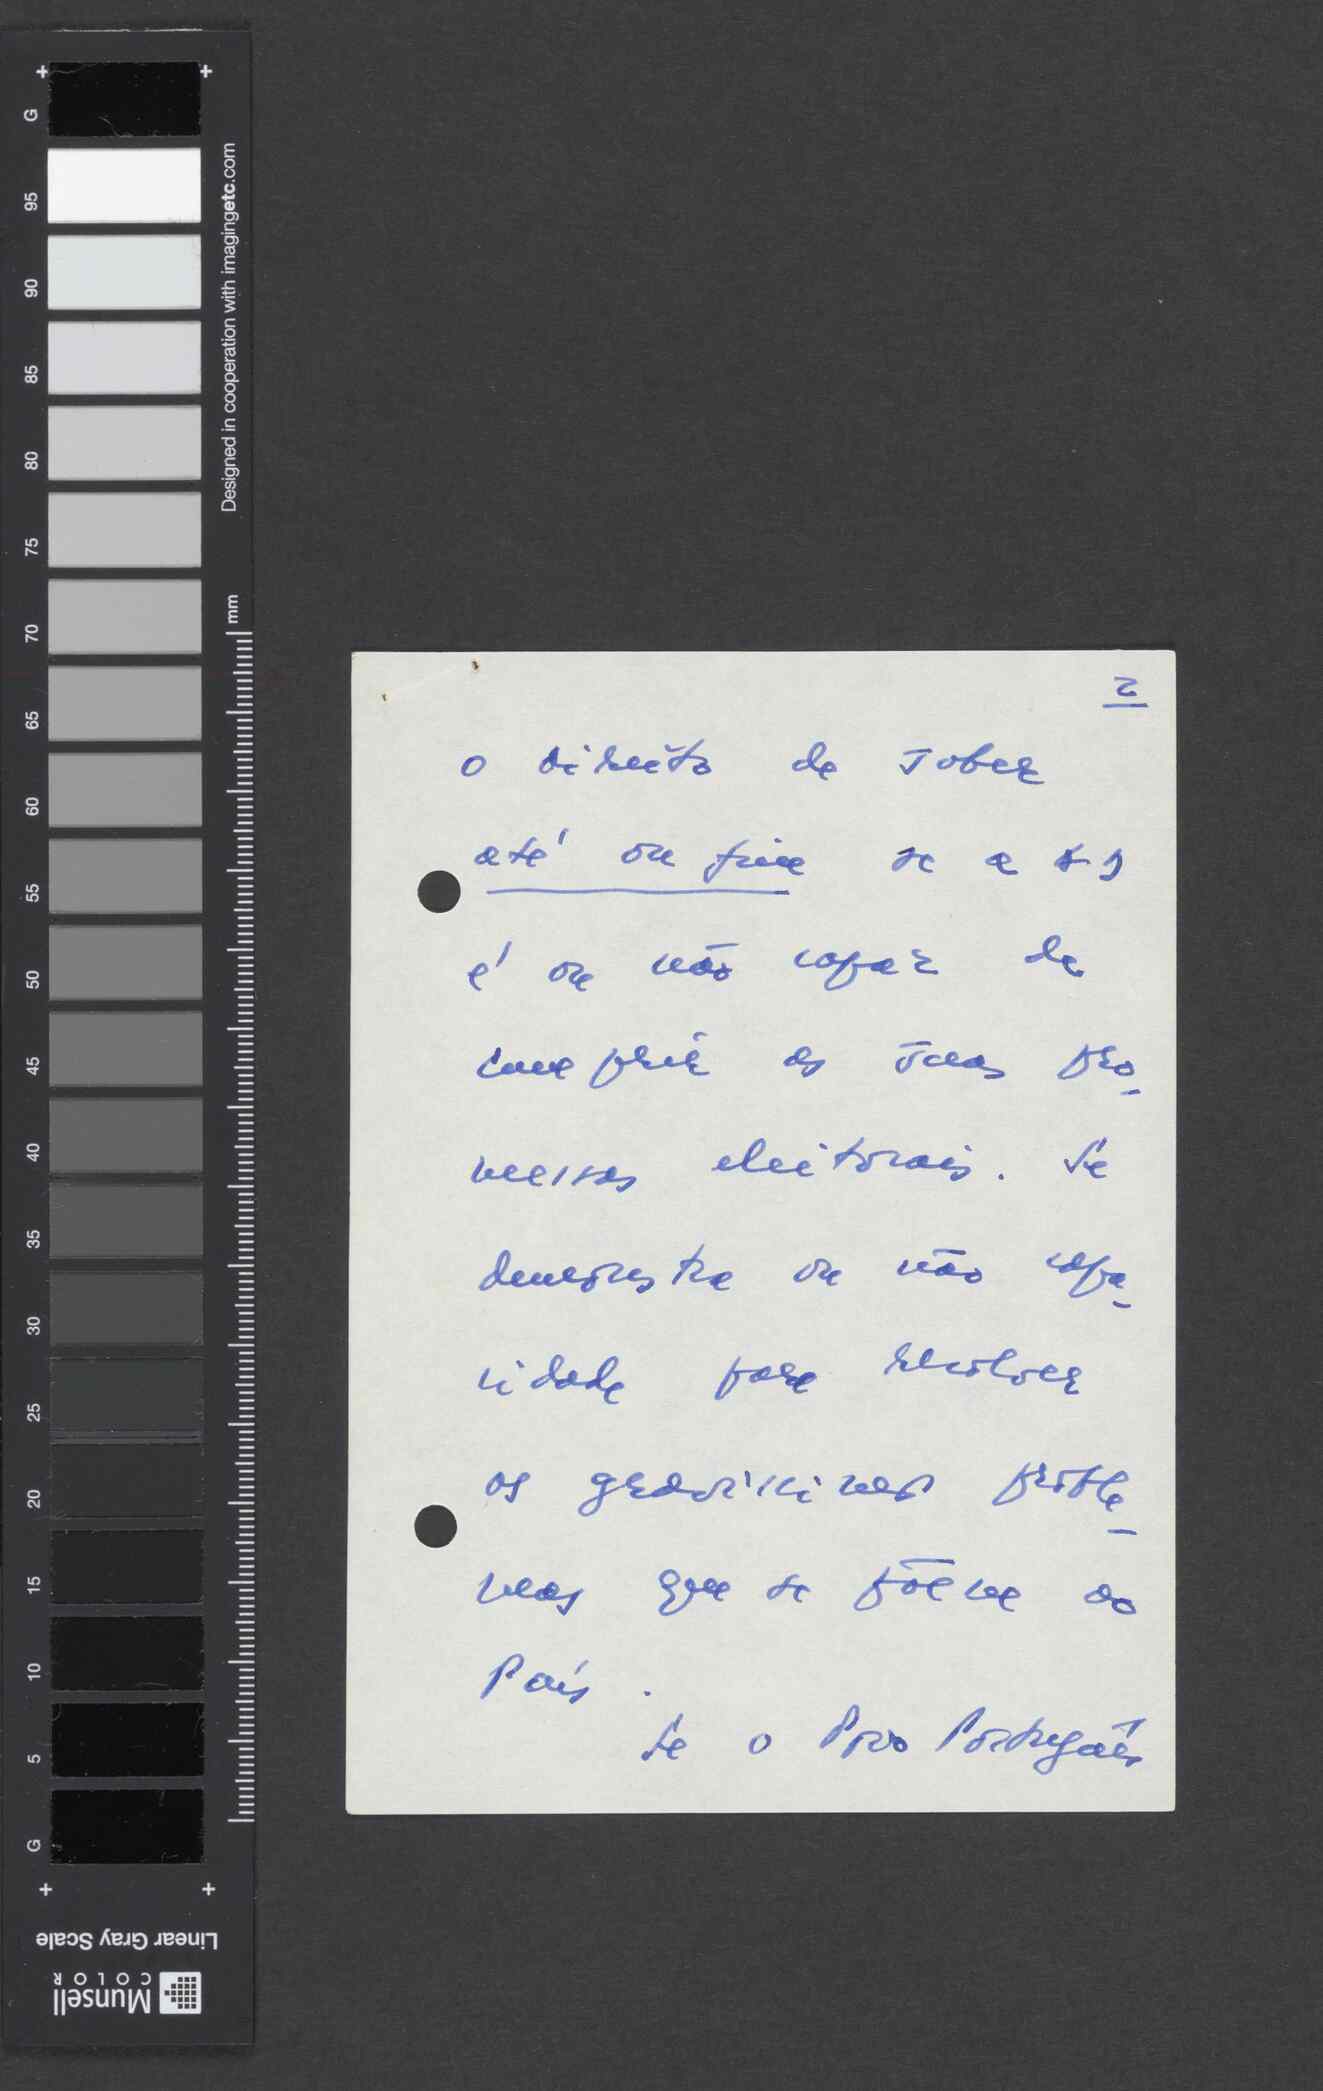 2
o direito de saber
até ao fim se a AD
é ou não capaz de
cumprir as suas pro-
messas eleitorais. Se
demonstra ou não capa-
cidade para resolver
os gravíssimos proble-
mas que se põem ao
País.
Se o Povo Português
G
95
90
85
80
75
70
65
60
55
50
45
40
35
30
25
20
15
10
5
G
Designed in cooperation with imagingetc.com
mm
Linear Gray Scale
Munsell
COLOR